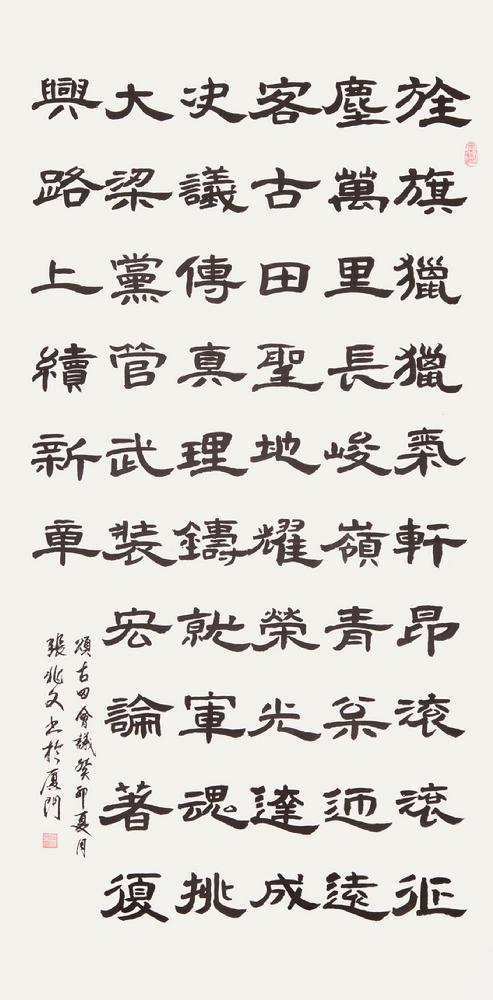 旌旗獵獵氣軒昂滾滾征
塵萬里長峻嶺青枀迎遠
客古田聖地耀榮光達成
決議傳真理鑄就軍魂挑
大梁黨管武裝宏論著復
興路上續新章
頌古田會議癸卯夏月
張兆文书於廈門